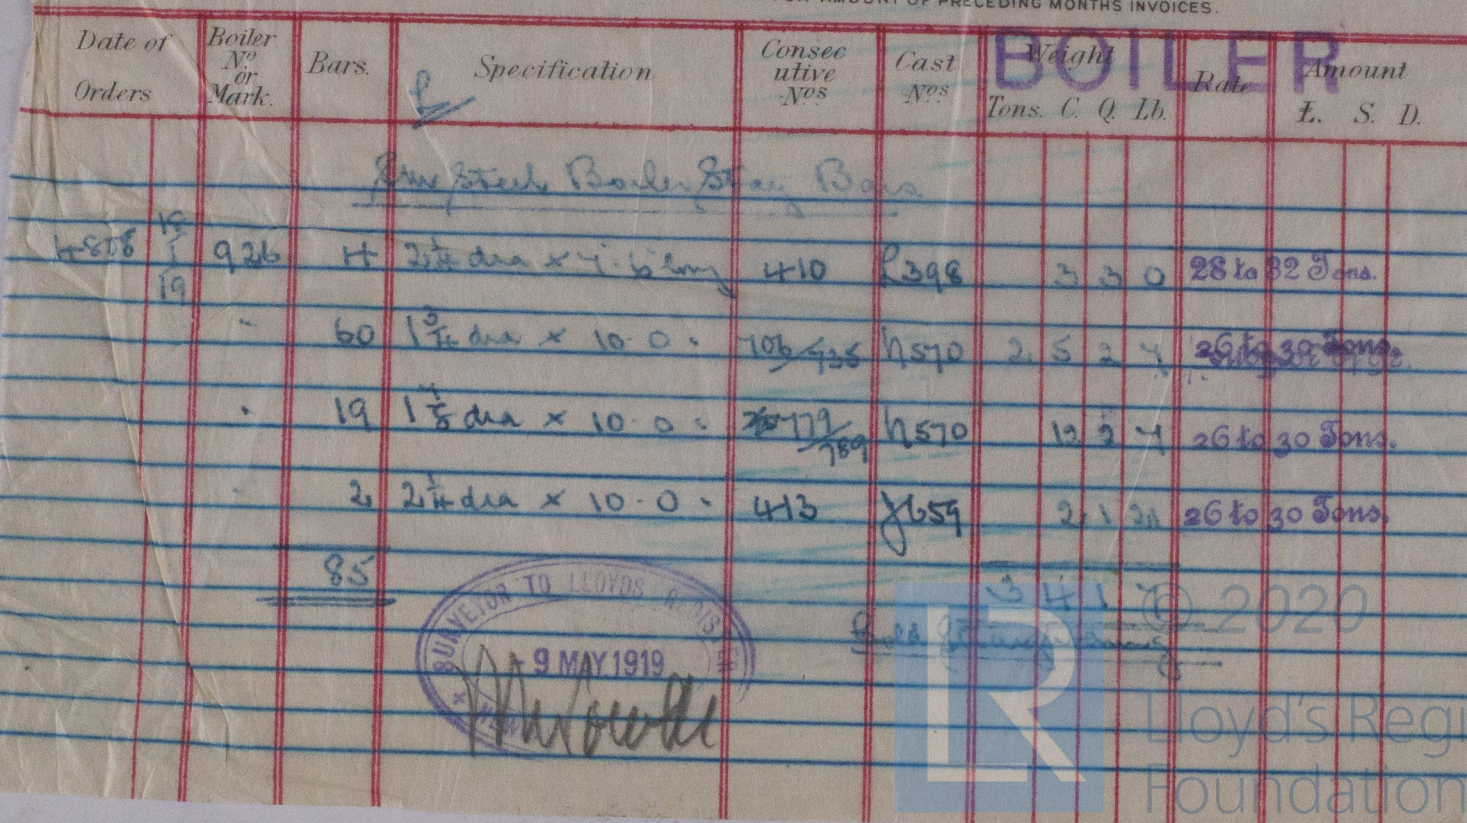 AMOUNT OF PRECEDING MONTHS INVOICES.
BOILER
Date of Orders Boiler No. or Mark. Bars. Specification Consec utive Nos Cast Nos Weight Tons. C. Q. Lb. Rate Amount £. S. D.
Steel Boiler Stay Bars
926 4 2¼ dia × 7.6 long 410 L398 3 3 0 28 to 32 Tons.
" 60 1¾ dia × 10.0 " 706/735 h570 2 5 2 7 26 to 30 Tons.
" 19 1⅞ dia × 10.0 " 779/789 h570 12 2 7 26 to 30 Tons.
" 2 2¼ dia × 10.0 " 413 J659 2 1 21 26 to 30 Tons.
85
3 4 1 7
SURVEYOR TO LLOYDS REGISTER
9 MAY 1919
LR © 2020
Lloyd's Regi
Foundation